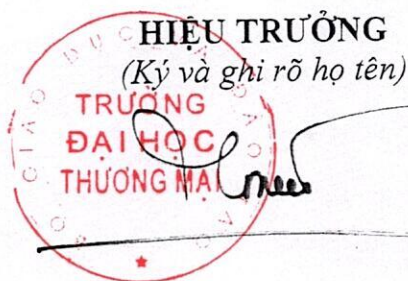 HIỆU TRƯỞNG
(Ký và ghi rõ họ tên)
TRƯỜNG
ĐẠI HỌC
THƯƠNG MẠI